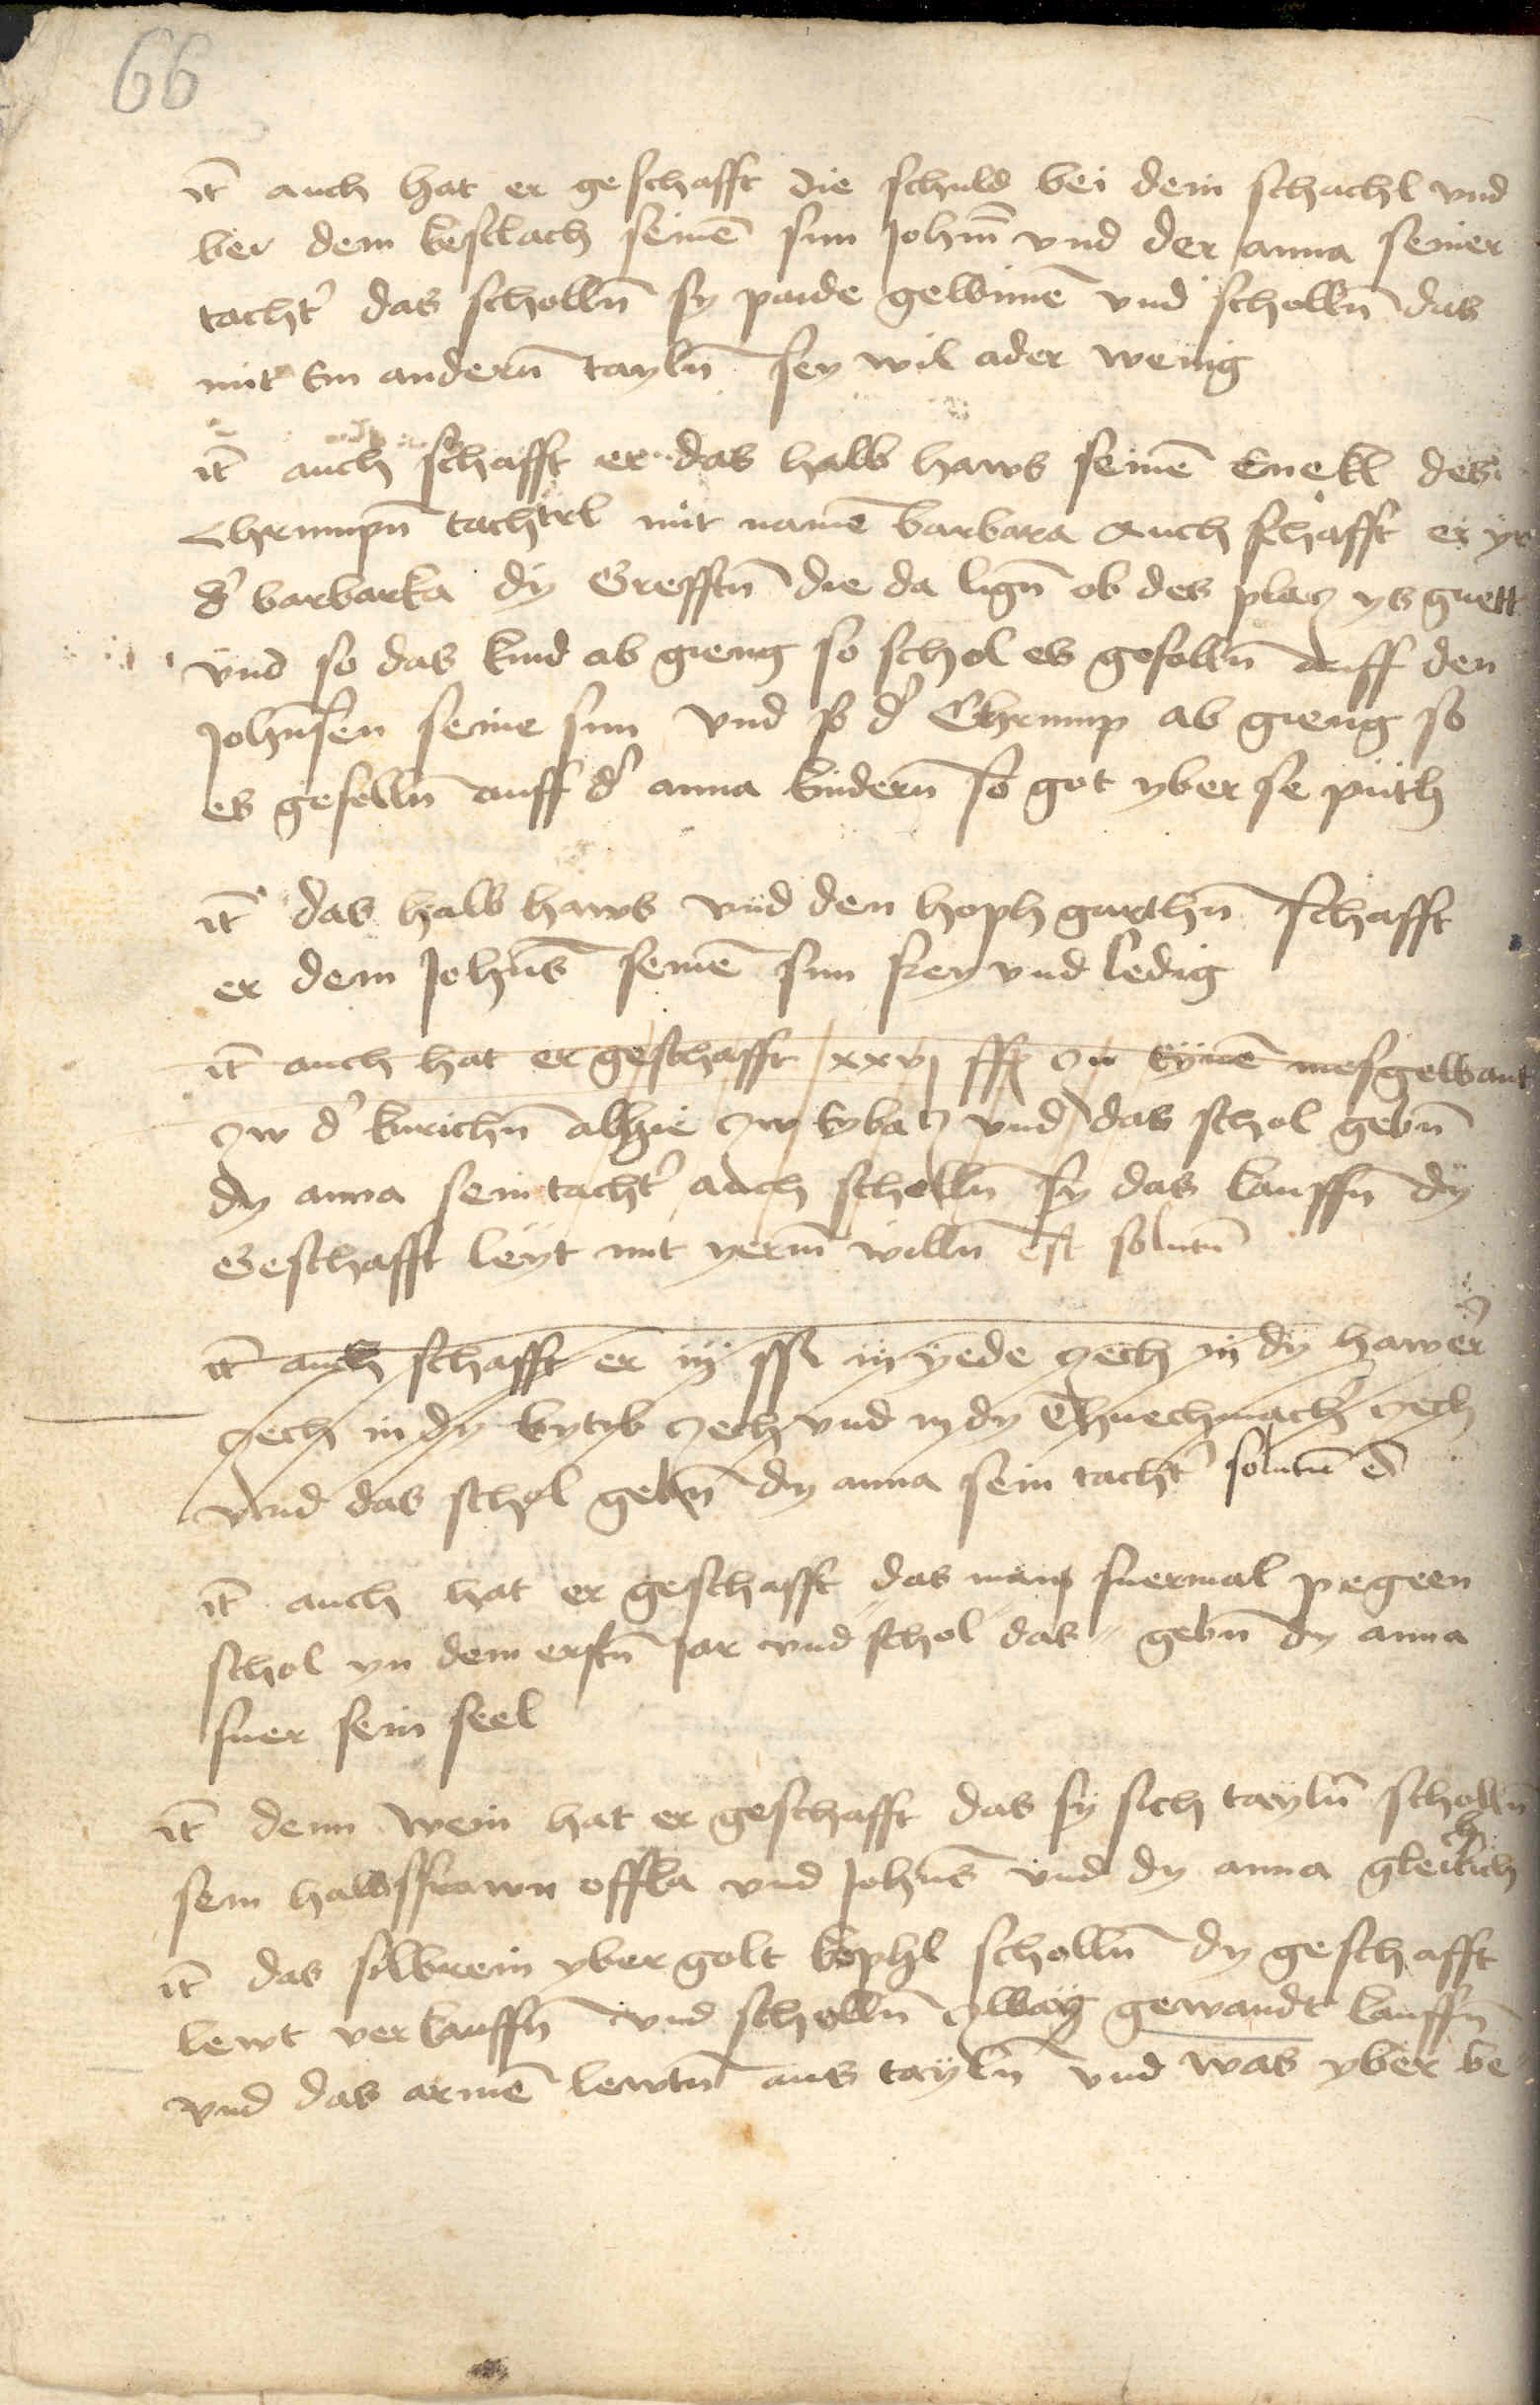 66
it auch hat er geschafft die schuld bei dem schachl vnd
bei dem kestlach seinē sun Johan̄ vnd der anna seiner
tacht' das scholln̄ sy paide gewinnē vnd scholln̄ das
mit Ein andern̄ tayln̄ sey wil ader wenig
it auch schafft er das halb haws seinē Enekl des
Chrumpn̄ tachtrl mit namē barbara Auch schafft er yr
d' barbarka dy Grefftn̄ die da lign̄ ob des placz ys guett
vnd so das kind ab gieng so schol es gefolln̄ auff den
Johnsen seine sun vnd so d' Chrump ab gieng so
es gefolln̄ auff d' anna kindern̄ so got yber se püth
it das halb haws vnd den hoph garthn̄ schafft
er dem Johns̄ seinē sun frey vnd ledig
it auch hat er geschafft xxvj ff czu eynē mesgewant
czw d' kirichn̄ alhie czw Eybacz vnd das schol gebn̄
dy anna sein tacht' auch scholln̄ sy das kauffn̄ dy
Geschafft leyt mit yerm̄ willn̄ est solutū
it auch schafft er iij ff in yede czech in dy hawer
czech in dy kytyb czech vnd in dy Thuechmach' czech
vnd das schol gebn̄ dy anna sein tacht' solutū ē
it auch hat er geschafft das man suermal pegeen
schol yn dem erstn̄ Jar vnd schol das gebn̄ dy anna
fuer sein seel
it denn wein hat er geschafft das sy sich tayln̄ scholln̄
sein hawsfrawn offka vnd Johns̄ vnd dy anna gleichlich
it das silbrein yber golt kophl scholln̄ dy geschafft
lewt verkauffn̄ vnd scholln̄ czway gewandt kauffn̄
vnd das armē lewtn̄ aus tayln̄ vnd was yber be